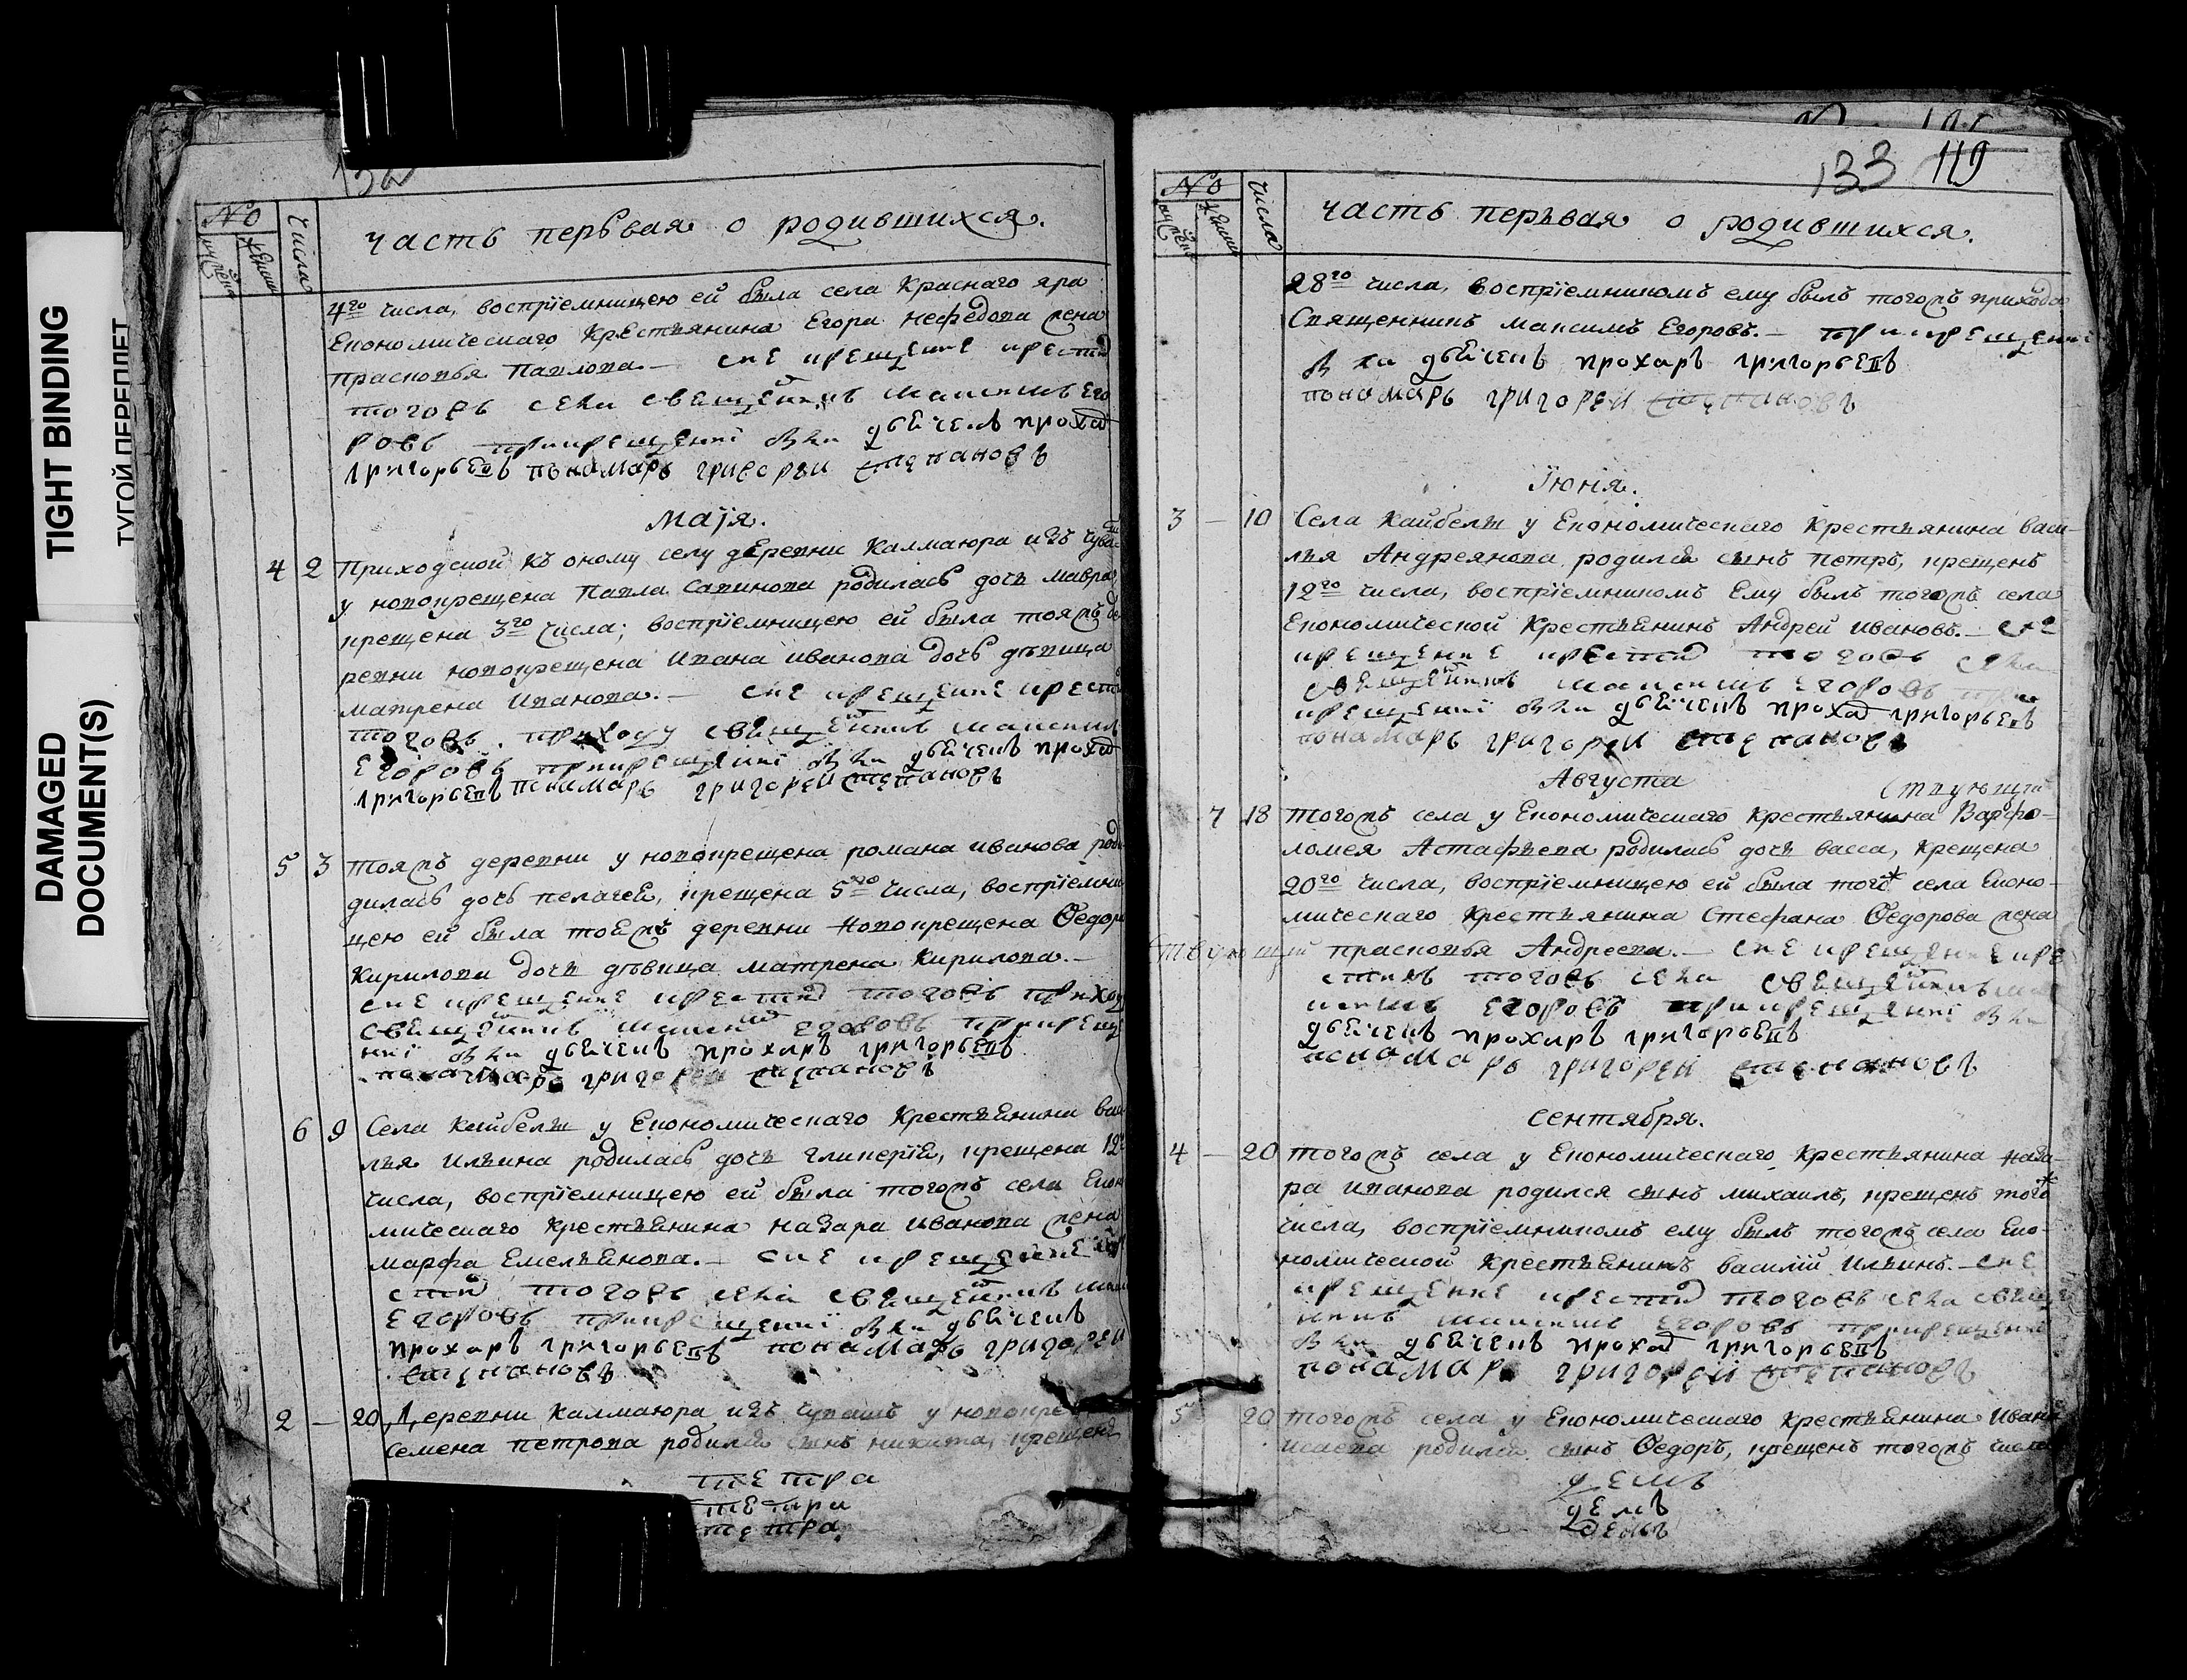 TIGHT BINDING
ТУГОЙ ПЕРЕПЛЕТ
DAMAGED
DOCUMENT(S)
№
числа
часть перьвая о родившихся.
4го числа, воспрїемницею ей была села Краснаго яра
Економическаго Крестьянина Егора Нефедова жена
Прасковья Павлова. — сие крещение крестил
тогожъ села священникъ Максимъ Его
ровъ при крещениї были дьячекъ прохоръ
григорьевъ понамарь григореи степановъ
Маїя.
4 2 Приходской къ оному селу деревни Калмаюра изъ чуваш
у новокрещена Павла Савинова родилась дочь Мавра,
крещена 3го числа; воспрїемницею ей была тояжъ де
ревни новокрещена Ивана Иванова дочь дѣвица
Матрена Иванова. — сие крещение крестил
тогожъ приходу священникъ Максимъ
Егоровъ при крещениї были дьячекъ прохоръ
григорьевъ понамарь григореи степановъ
5 3 тояжъ деревни у новокрещена Романа Иванова ро
дилась дочь пелагея, крещена 5го числа, воспрїемни
цею ей была тоежъ деревни Новокрещена Ѳедора
Кирилова дочь дѣвица Матрена Кирилова. —
сие крещение крестил тогожъ приходу
священникъ Максимъ Егоровъ при креще
ниї были дьячекъ прохоръ григорьевъ
понамарь григореи степановъ
6 9 Села Кайбелъ у Економическаго Крестьянина Васи
лья Ильина родилась дочь гликерїя, крещена 12го
числа, воспрїемницею ей была тогожъ села Еконо
мическаго Крестьянина Назара Иванова жена
Марфа Емельянова. — сие крещение кре
стил тогожъ села священникъ
Егоровъ при крещениї были дьячекъ
прохоръ григорьевъ понамарь григореи
степановъ
2 — 20 Деревни Калмаюра изъ чувашъ у новокре
Семена Петрова родился сынъ никита, крещенъ
петра
петра
петра
133 119
№
числа
часть перьвая о родившихся.
28го числа, воспрїемникомъ ему былъ тогожъ прихода
Священникъ Максимъ Егоровъ. — при крещениї
были дьячекъ прохоръ григорьевъ
понамарь григореи степановъ
Їюнїя.
3 — 10 Села Кайбелъ у Економическаго Крестьянина Васи-
лья Андреянова родился сынъ петръ, крещенъ
12го числа, воспрїемникомъ Ему былъ тогожъ села
Економической Крестьянинъ Андрей Ивановъ. — сие
крещение крестил тогожъ села
священникъ Максимъ Егоровъ при
крещениї были дьячекъ прохоръ григорьевъ
понамарь григореи степановъ
Августа
7 18 тогожъ села у Економическаго Крестьянина Варфо-
ломея Астафьева родилась дочь васса, крещена
20го числа, воспрїемницею ей была того* села Еконо-
мическаго Крестьянина Стефана Ѳедорова жена
прасковья Андреева. — сие крещение кре
стилъ тогожъ села священникъ ма
ксимъ Егоровъ при крещениї были
дьячекъ прохоръ григорьевъ
понамарь григореи степановъ
Сентября.
4 — 20 тогожъ села у Економическаго Крестьянина Наза-
ра Иванова родился сынъ михаилъ, крещенъ того*
числа, воспрїемникомъ ему былъ тогожъ села Еко-
номической Крестьянинъ василїй Ильинъ. — сие
крещение крестил тогожъ села свяще
никъ Максимъ Егоровъ при крещениї
были дьячекъ прохоръ григорьевъ
понамарь григореи степановъ
5 20 тогожъ села у Економическаго Крестьянина Ивана
исаева родился сынъ Ѳедоръ, крещенъ тогожъ числа
демъ
демъ
демъ